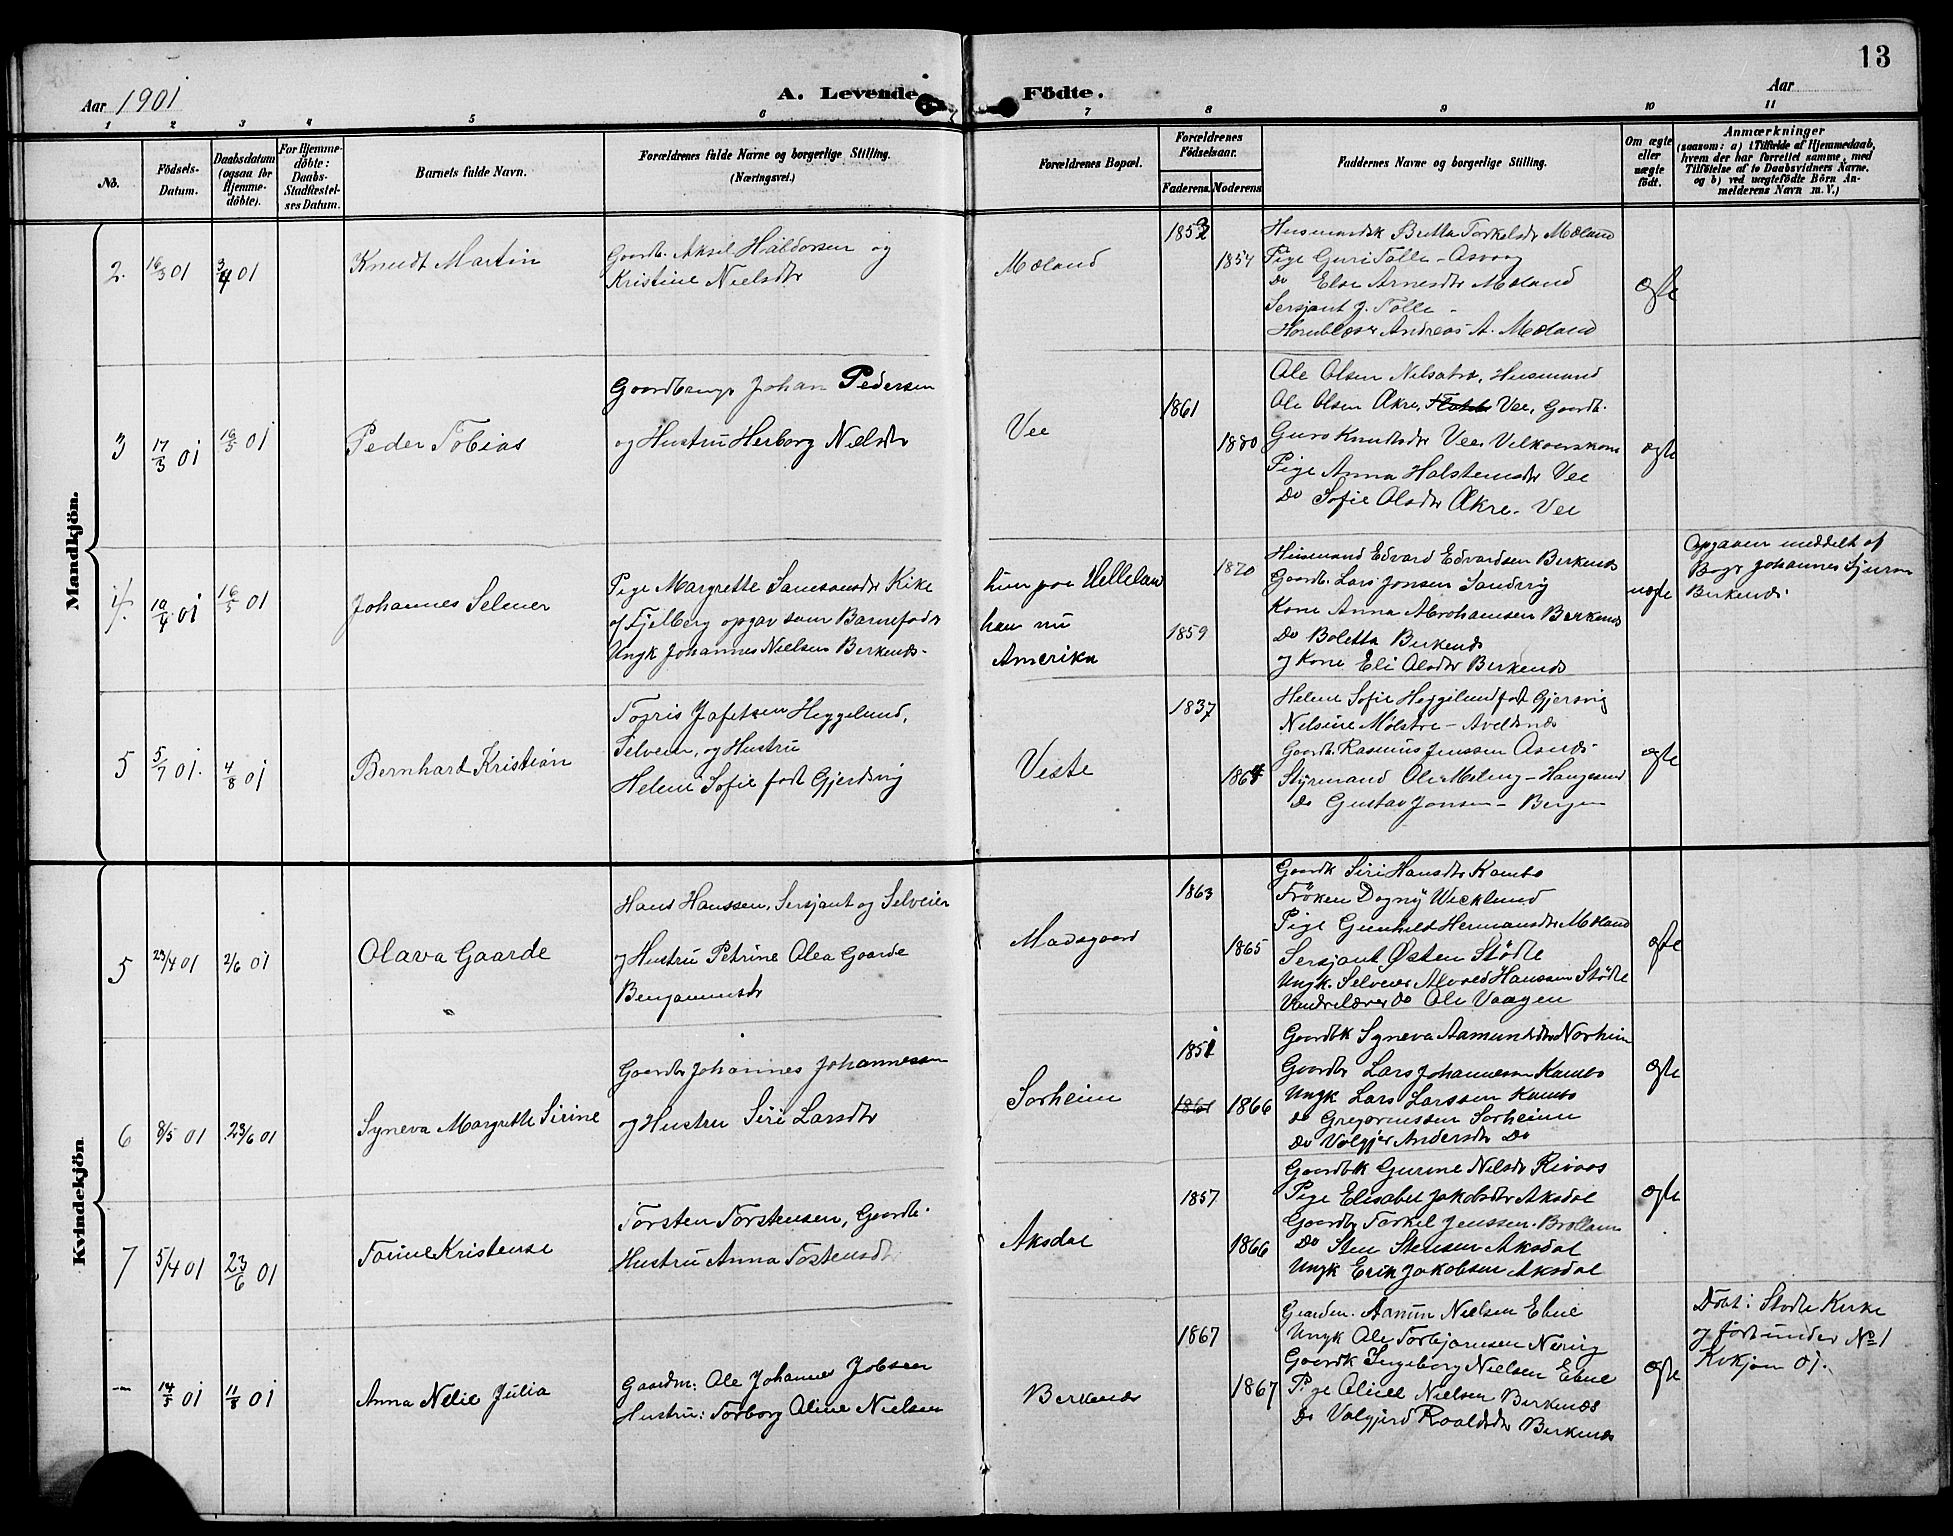 13
Aar 1901
A. Levende Födte.
Aar
1 2 3 4 5 6 7 8 9 10 11
No.
Födsels-Datum.
Daabsdatum (ogsaa for Hjemme-döbte).
For Hjemme-döbte: Daabs-Stadfæstel-ses Datum.
Barnets fulde Navn.
Forældrenes fulde Navne og borgerlige Stilling. (Næringsvei.)
Forældrenes Bopæl.
Forældrenes Födselsaar.
Faderens. Moderens.
Faddernes Navne og borgerlige Stilling.
Om ægte eller uægte födt.
Anmærkninger
(saasom: a) i Tilfælde af Hjemmedaab, hvem der har forrettet samme, med Tilföielse af to Daabsvidners Navne. og b) ved uægtefödte Börn An-melderens Navn m. V.)
Mandkjön.
2. 16/3 01 3/4 01
Knudt Martin
Gaardb. Aksil Haldorsen og
Kristine Nielsdtr
Mæland
1854
Husmandsk Britta Torkelsdr Mæland
Pige Guri Tolle - Asvaag
Do Else Arnesdtr Mæland
Sersjant J. Tolle -
Hornblæser Andreas A. Mæland
ægte
3 17/3 01 16/5 01
Peder Tobias
Gaardbruger Johan Pedersen
og Hustru Herborg Nielsdtr
Vee
1861
1880
Ole Olsen Husmand
Ole Olsen Ækre, Vee, Gaardb.
Guro Knudtsdtr Vee
Pige Anna Halstensdtr Vee
Do Sofie Olsdtr Ækre - Vee
ægte
4. 16/5 01
Johannes Selmer
Pige Margrethe Samsonsdtr Kike
af Fjelberg opgav som Barnefader
Ungk Johannes Nielsen Berkenæs -
hun paa Helleland
han nu
Amerika
1870
1859
Husmand Edvard Edvardsen Birkenæs
Gaardb. Lars Jonsen Sandvig
Kone Anna Abrahamsen Berkenæs
Do Boletta Birkenæs
og Kone Eli Olsdtr Birkenæs
uægte
Opgaven meddelt af
Johannes
Birkenæs
5 5/7 01. 4/8 01
Bernhard Kristian
Tøgris Jafetsen Heggelund,
Selveier, og Hustru
Helene Sofie født Gjerdsvig
Veste
1837
Helene Sofie Heggelund født Gjersvig
Nelsine Mølstre - Avaldsnæs
Gaardb. Rasmus Jenssen Asnæs -
Styrmand Ole Meling - Haugesund
Do Gustav Jonsen - Bergen
ægte
Kvindekjön
5 23/4 01 2/6 01
Olava Gaarde
Hans Hanssen, Sersjant og Selveier
og Hustru Petrine Olea Gaarde
Benjaminsdtr
Madsgaard
1863
1865
Gaardk Siri Hansdtr Kambo
Frøken Dagny Wecklund
Pige Gunhild Hermansdtr Mæland
Sersjant Østen Stødle
Ungk. Selveier Alvred Hanssen Stødle
Do Ole Vaagen
ægte
6 8/5 01 23/6 01
Syneva Margrethe Sirine
Gaardbr Johannes Johannessen
og Hustru Siri Larsdtr
Sørheim
1851
1861 1866
Gaardbk Syneva Aamundsdtr Norheim
Gaardbr Lars Johannesen Kambo
Ungk Lars Larssen Kambo
do Gregoriussen Sørheim
Do Valgjer Andersdtr Do
ægte
7 5/4 01 23/6 01
Torine Kristense
Torsten Torstensen, Gaardb.
Hustru Anna Tostensdtr
Aksdal
1857
1866
Gaardbk Gurine Nelsdtr Rivaas
Pige Elisabet Jakobsdtr Aksdal
Gaardbr Torkel Jenssen
Do Sten Stensen Aksdal
Ungk Erik Jakobsen Aksdal
ægte
— 14/5 01 11/8 01
Anna Nelie Julia
Gaardm: Ole Johannes Jobsen
Hustru: Torborg Oline Nielsen
Berkenæs
1867
1867
Gaardm. Amun Nielsen Ebne
Ungk Ole Torbjørnsen Nerig
Gaardk Ingeborg Nielsen Ebne
Pige Oline Nielsen Berkenæs
Do Valgjerd Roaldsdtr Berkenæs
ægte
Døbt i Stødle Kirke
og ført under No 1
Kvkjøn 01.